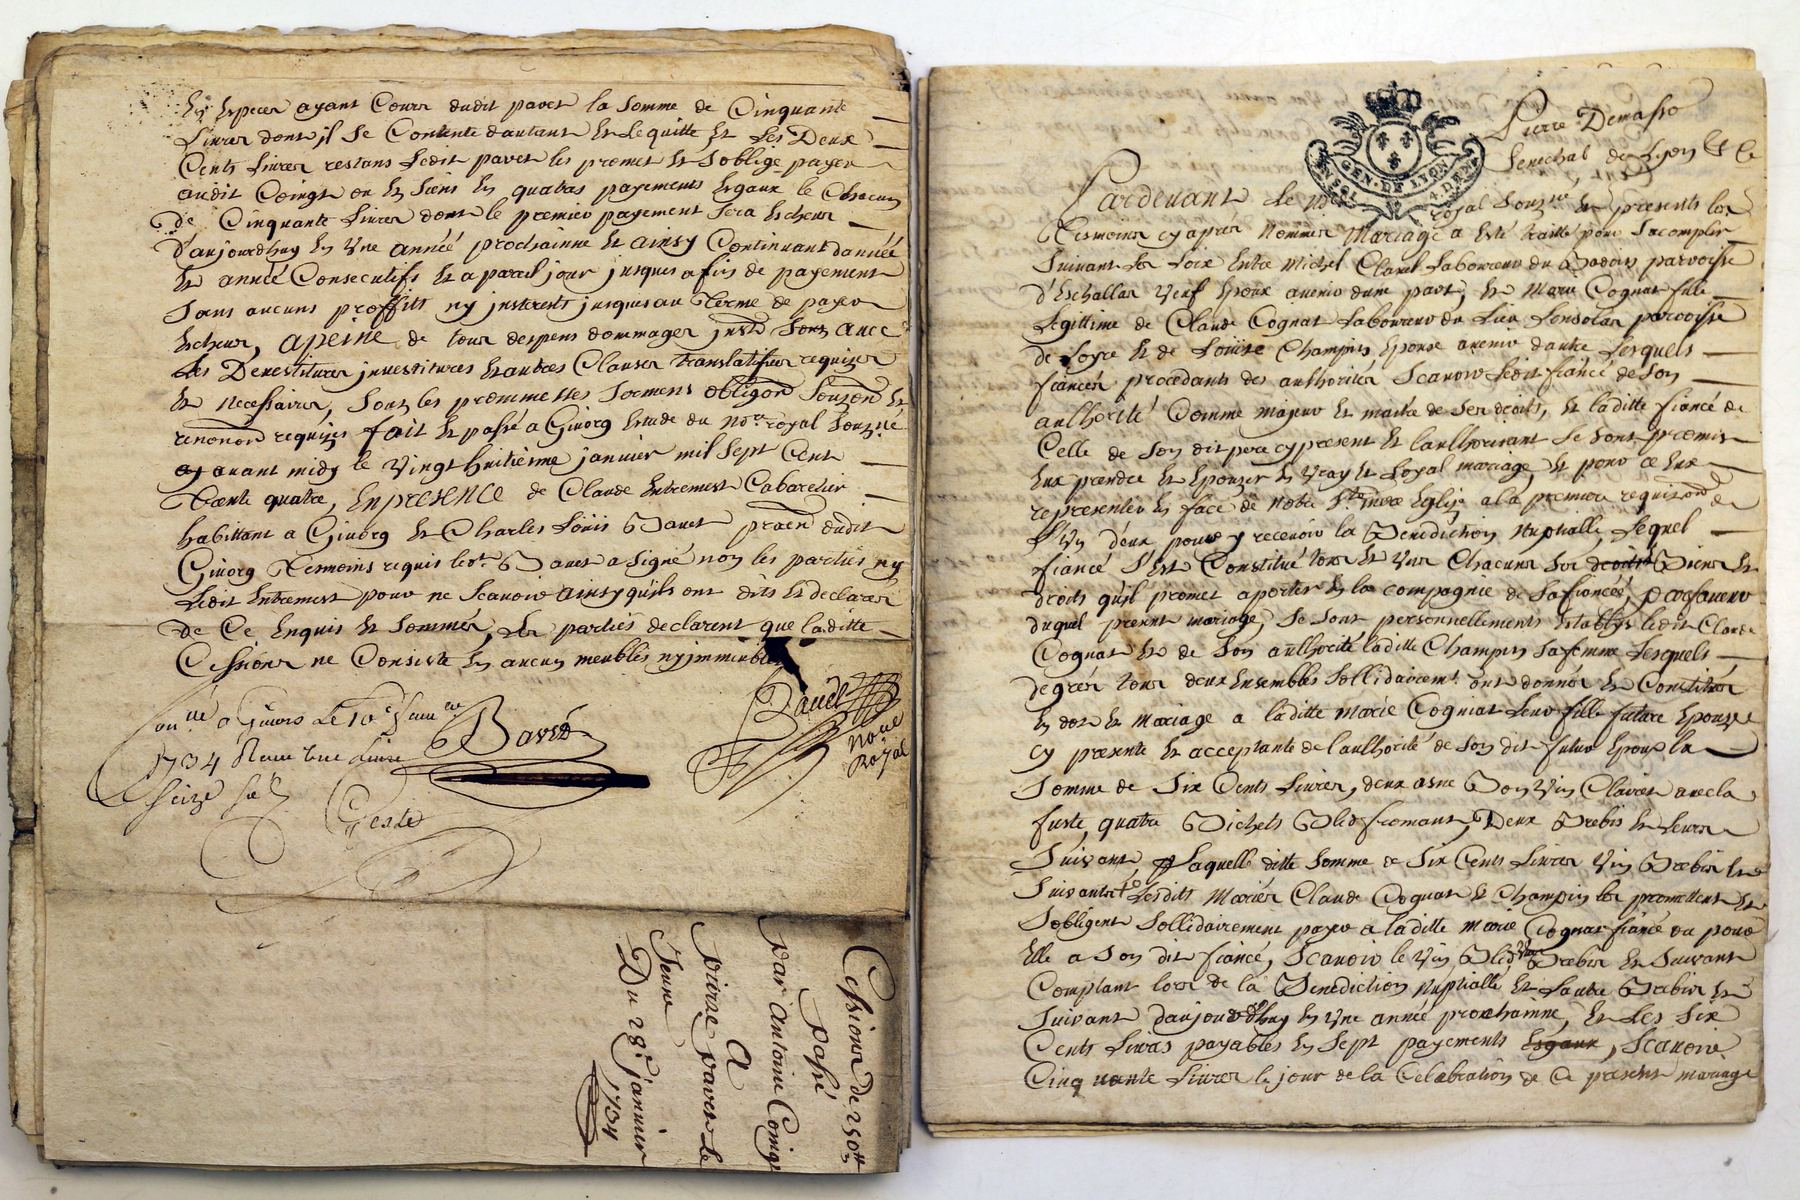 En Especes ayant Cours dudit pavet la Somme de Cinquante
Livres dont il Se Contente dautant Et Le quitte Et Les Deux
Cents Livres restans Ledit pavet les promet Et Soblige payer
audit Coingt ou Es Siens En quatres payements Esgaux le Chacun
De Cinquante Livres dont le premier payement Sera Escheux
D'aujourdhuy En Vne année prochainne Et ainsy Continuant dannéé
En année Consecutifs Et a pareil jour jusques a fin de payement
Sans aucuns proffits ny jnterests jusques au Terme de payer
Escheus, apeine de tous despens dommages jnsts Sous avec
Les Devestitures jnvestitures Et autres Clauses translatifves requises
Et necessaires, Sous les prommesses Sermens obligon Souzon Et
renonon requises fait Et passé a Givors Estude du nore royal Souzné
avant midy le Vingt huitiesme janvier mil Sept Cent
Trente quatre, En presence de Claude Entremest Cabaretier
habittant a Givors Et Charles Loüis Bavet praen dudit
Givors Tesmoins requis ledt Bavet a Signé non les parties ny
Ledit Entremest pour ne Scavoir ainsy quils ont dits Et declarés
De Ce Enquis Et Sommés, Les parties declarent que laditte
Cessions ne Consiste En aucuns meubles ny jmmeubles
a Givors Le 10e
1734
Seize
Bavet
Geste
nore
Royal
Cessions de 250#
Passé
par antoine Coingt
A
pierre pavet Le
Jeune
Du 28e janvier
1734
GEN. DE LYON
Pierre Demasso
Senechal de Lyon Et Ce
Pardevant Le nore royal Souzné Et presents les
Tesmoins cy aprés Nommés Mariage a Esté traitté pour Sacomplir
Suivant les Loix Entre Michel Clavel Laboureur du parroisse
d'Eschallas Veuf Epoux avenir dune part, Et Marie Cognat fille
Legittime de Claude Cognat Laboureur du Lieu parroisse
de Loyre Et de Loüise Champin Epouse avenir dautre Lesquels
fiancés procedants des authorités Scavoir Ledit fiancé de Son
authorité Comme majeur Et maitre de Ses droits, Et laditte fiancé de
Celle de Son dit pere cy present Et lauthorisant Se Sont promis
Eux prendre Et Epouzer En Vray Et Loyal mariage, Et pour ce Eux
representer En face de notre Ste mere Eglise a la premiere requizon de
L'Vn deux pour y recevoir la Benediction Nuptialle Lequel
fiancé S'Est Constitué tous Et Vns Chacuns Ses droits Biens Et
droits qu'il promet aporter En la compagnie de Sa fiancéé, Par faveur
duquel present mariage, Se Sont personnellements Establys ledit Claude
Cognat Et de Son authorité laditte Champin Sa femme Lesquels
de grés tous deux Ensembles Sollidairemt ont donnés Et Constitués
En dot Et mariage a laditte Marie Cognat Leur fille future Epouze
cy presente Et acceptante de lauthorité de Son dit futur Epoux la
Somme de Six Cents Livres, deux asne Bon Vin Clairet avec la
fuste, quatre Bichets Bled fromant, Deux Brebis Et leurs
Suivant, Laquelle ditte Somme de Six Cents Livres Vin Brebis Et
Suivants Lesdits Mariés Claude Cognat Et Champin les promettent Et
Sobligent Sollidairement payer a laditte Marie Cognat fiancé ou pour
Elle a Son dit fiancé, Scavoir le Vin Bled Vne Brebis Et Suivant
Comptant lors de la Benediction Nuptialle Et Lautre Brebis Et
Suivant daujourdhuy En Vne année prochainne, Et Les Six
Cents Livres payables En Sept payements Esgaux, Scavoir
Cinquante Livres le jour de la Celebration de Ce present mariage